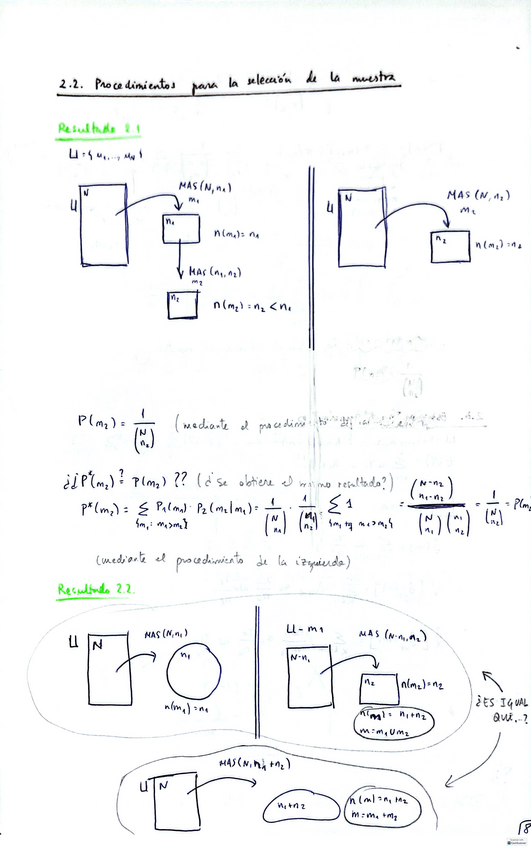 2.2. Procedimientos para la selección de la muestra
Resultado 2.1
U = { u₁, ..., u_N }
U N MAS(N,n₁) m₁
n₁ n(m₁) = n₁
MAS(n₁,n₂) m₂
n₂ n(m₂) = n₂ < n₁
U N MAS(N,n₂) m₂
n₂ n(m₂) = n₂
P(m₂) = 1 / (N n₂) (mediante el procedimiento de la
¿¿ P*(m₂) ?= P(m₂) ?? (¿se obtiene el mismo resultado?)
P*(m₂) = Σ {m₁: m₁>m₂} P₁(m₁) · P₂(m₂|m₁) = 1/(N n₁) · 1/(n₁ n₂) Σ {m₁ tq m₁>m₂} 1 = (N-n₂ n₁-n₂) / (N n₁)(n₁ n₂) = 1/(N n₂) = P(m₂
(mediante el procedimiento de la izquierda)
Resultado 2.2.
U N MAS(N,n₁) n₁
n(m₁) = n₁
U - m₁ MAS(N-n₁,n₂)
N-n₁ n₂ n(m₂) = n₂
n(m) = n₁+n₂
m = m₁ U m₂
¿ES IGUAL
QUE..?
MAS(N, n₁ + n₂)
U N n₁+n₂ n(m) = n₁+n₂
m = m₁+m₂
8